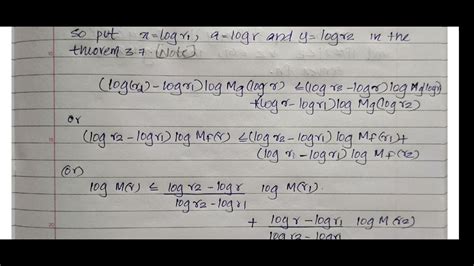 So put x=logr1, a=logr and y=logr2 in the
theorem 3.7 (Note)
(log(r2)-logr1) log Mg(logr) ≤(logr2-logr) log Mg(logr1)
+(logr-logr1) log Mg(logr2)
or
(logr2-logr1) log Mf(r) ≤(logr2-logr) log Mf(r1)+
(logr1-logr1) log Mf(r2)
(or)
log M(r) ≤ logr2-logr log M(r1)
logr2-logr1
+ logr-logr1 log M(r2)
logr2-logr1